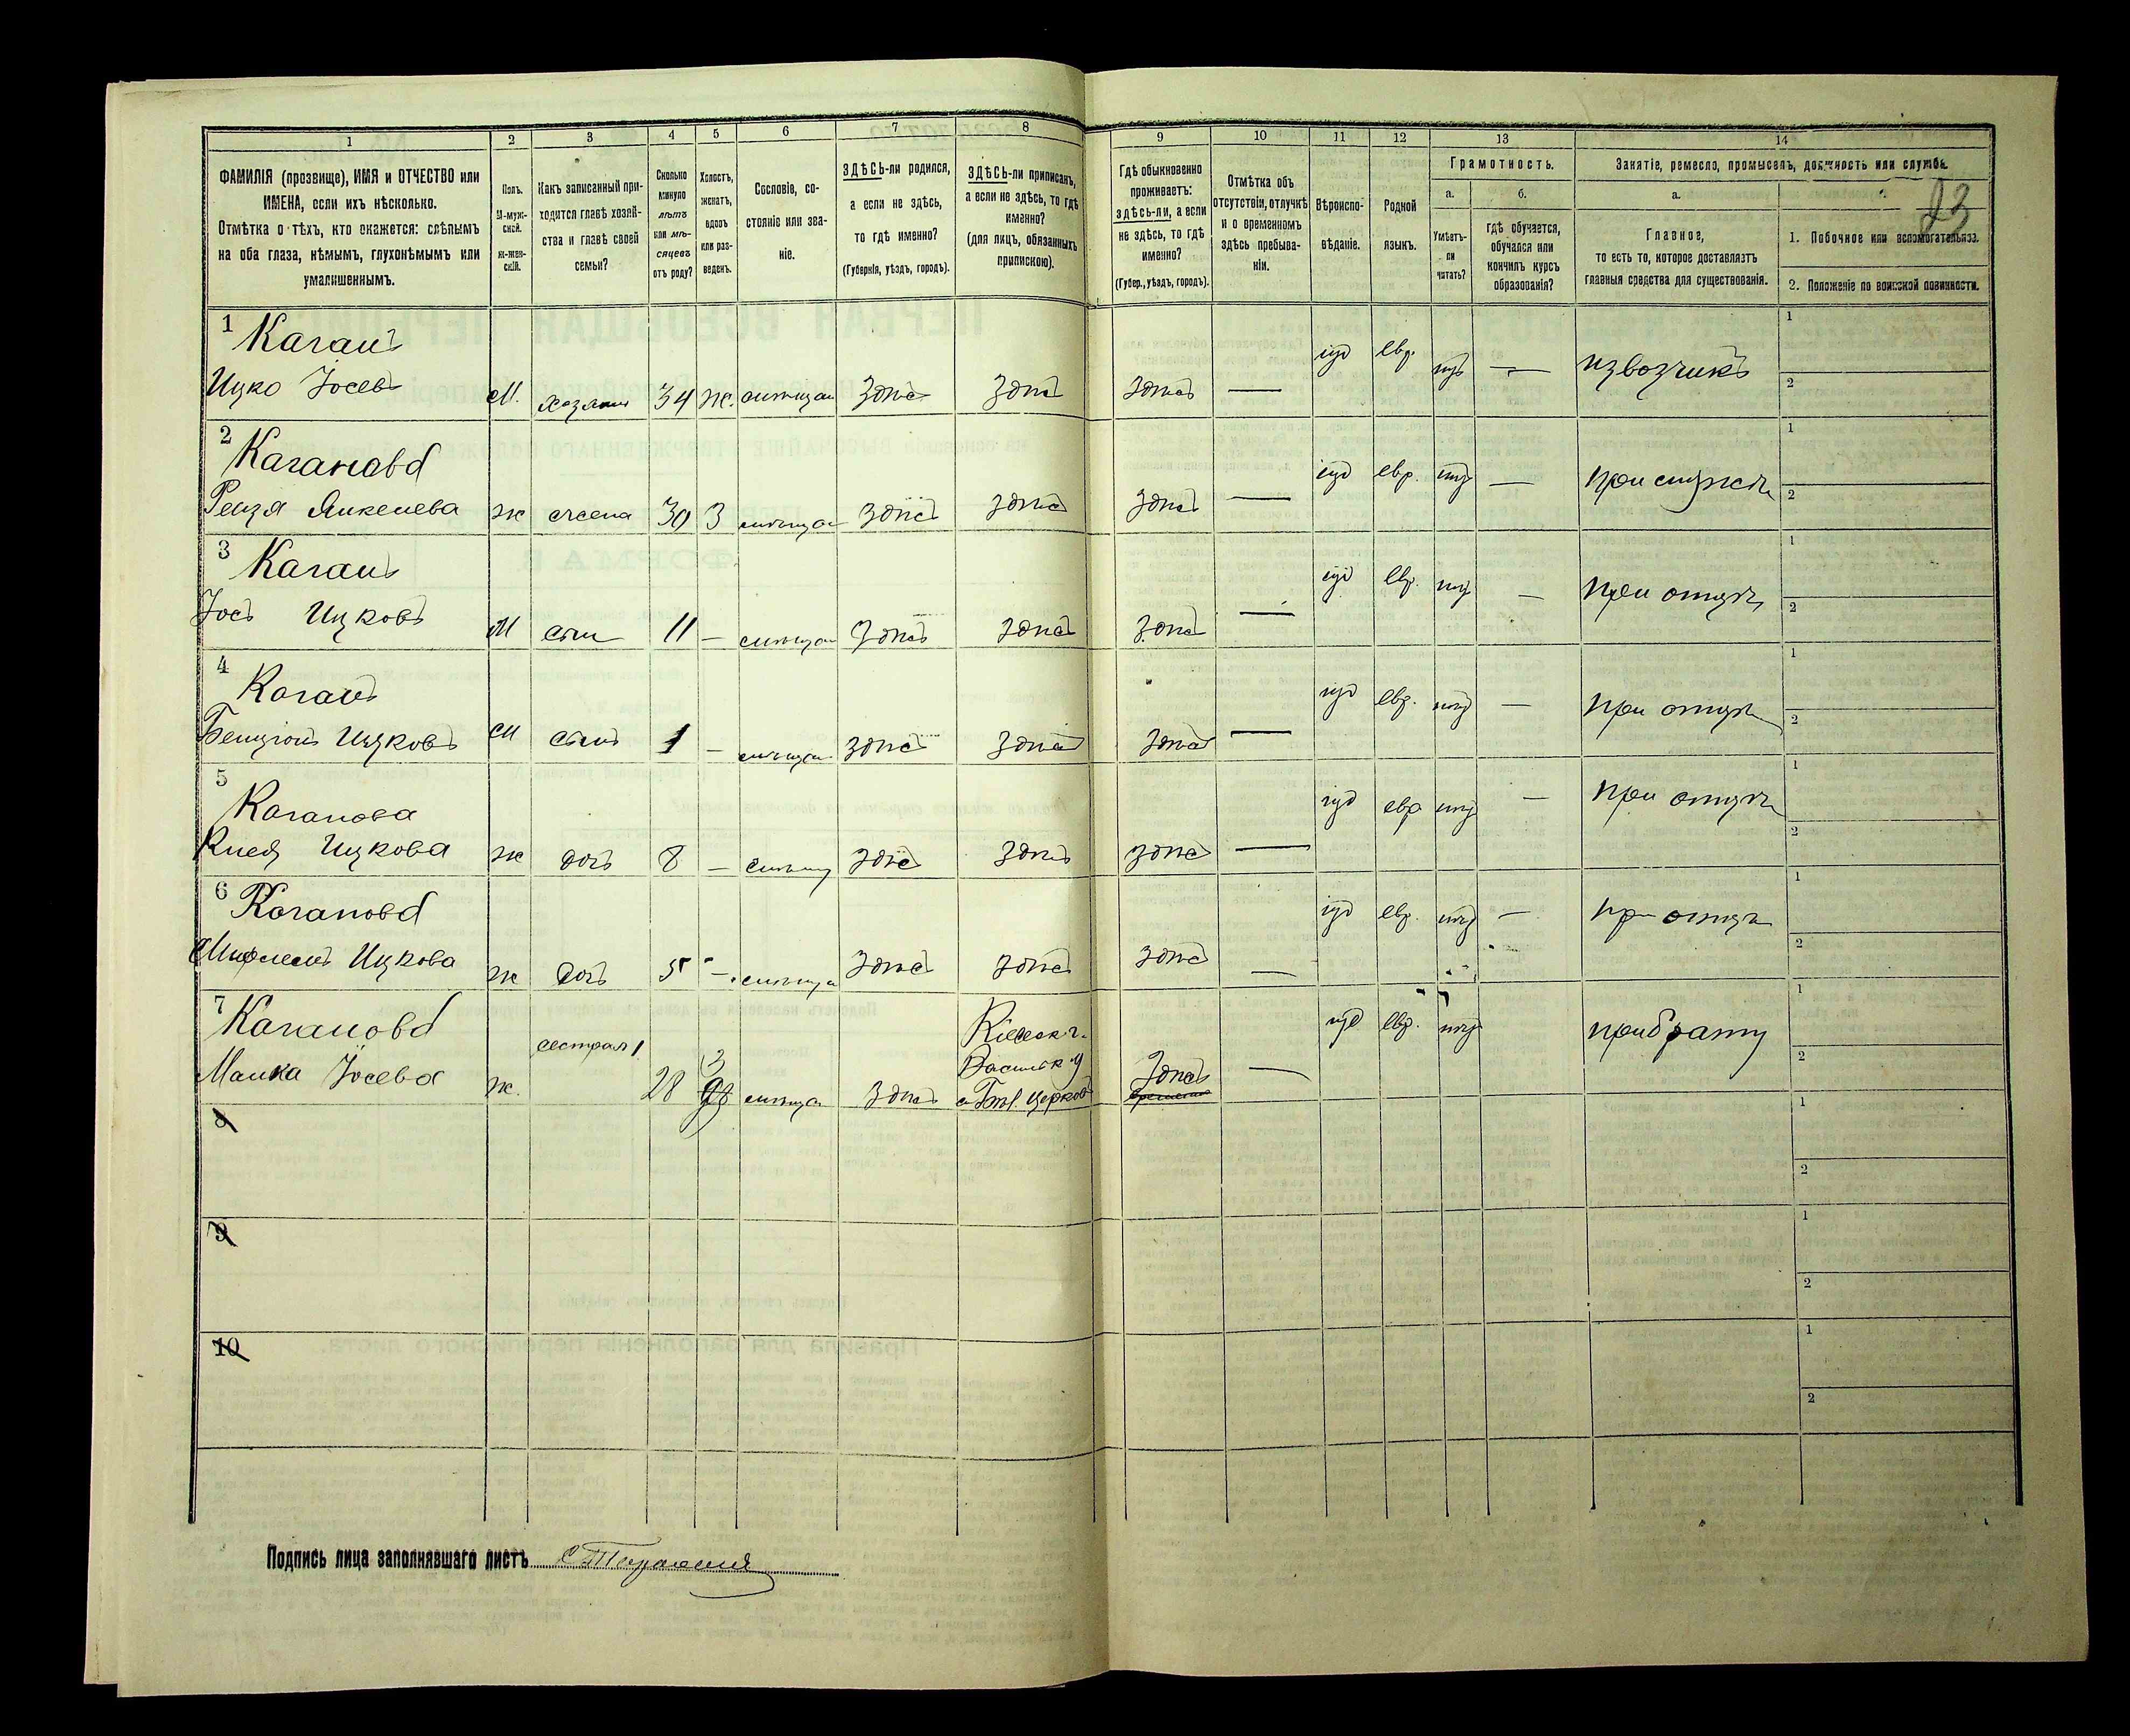 1 2 3 4 5 6 7 8 9 10 11 12 13 14
ФАМИЛІЯ (прозвище), ИМЯ и ОТЧЕСТВО или
ИМЕНА, если ихъ нѣсколько.
Отмѣтка о тѣхъ, кто окажется: слѣпымъ
на оба глаза, нѣмымъ, глухонѣмымъ или
умалишеннымъ.
Полъ.
М-муж-
ской.
ж-жен-
скій.
Какъ записанный при-
ходится главѣ хозяй-
ства и главѣ своей
семьи?
Сколько
минуло
лѣтъ
или мѣ-
сяцевъ
отъ роду?
Холостъ,
женатъ,
вдовъ
или раз-
веденъ.
Сословіе, со-
стояніе или зва-
ніе.
ЗДѢСЬ-ли родился,
а если не здѣсь,
то гдѣ именно?
(Губернія, уѣздъ, городъ).
ЗДѢСЬ-ли приписанъ,
а если не здѣсь, то гдѣ
именно?
(для лицъ, обязанныхъ
припискою).
Гдѣ обыкновенно
проживаетъ:
здѣсь-ли, а если
не здѣсь, то гдѣ
именно?
(Губер., уѣздъ, городъ).
Отмѣтка объ
отсутствіи, отлучкѣ
и о временномъ
здѣсь пребыва-
ніи.
Вѣроиспо-
вѣданіе.
Родной
языкъ.
Грамотность.
а.
Умѣетъ-
ли
читать?
б.
гдѣ обучается,
обучался или
кончилъ курсъ
образованія?
Занятіе, ремесло, промыселъ, должность или служба.
23
а.
Главное,
то есть то, которое доставляетъ
главныя средства для существованія.
1. Побочное или вспомогательное.
2. Положеніе по воинской повинности.
1 Каганъ
Ицко Іосевъ М. хозяинъ 34 ж. мѣщан здѣсь здѣсь здѣсь — іуд евр. нѣтъ — извозчикъ 1 2
2 Каганова
Рейзя Янкелева ж жена 30 З мѣщан здѣсь здѣсь здѣсь — іуд евр. нѣтъ — при мужѣ 1 2
3 Каганъ
Іось Ицковъ М сынъ 11 — мѣщан здѣсь здѣсь здѣсь — іуд евр. нѣтъ — при отцѣ 1 2
4 Каганъ
Бенціонъ Ицковъ М сынъ 1 — мѣщан здѣсь здѣсь здѣсь — іуд евр. нѣтъ — при отцѣ 1 2
5 Каганова
Ицкова ж дочь 8 — мѣщ здѣсь здѣсь здѣсь — іуд евр нѣтъ — при отцѣ 1 2
6 Каганова
Ицкова ж дочь 5 — мѣща здѣсь здѣсь здѣсь — іуд евр. нѣтъ — при отцѣ 1 2
7 Каганова
Малка Іосева ж. сестра 1 28 мѣща здѣсь Кіевск г.
Васильк у
Бѣл. Церковь здѣсь — іуд евр. нѣтъ при брату 1 2
8 1 2
9 1 2
10 1 2
Подпись лица заполнявшаго листъ